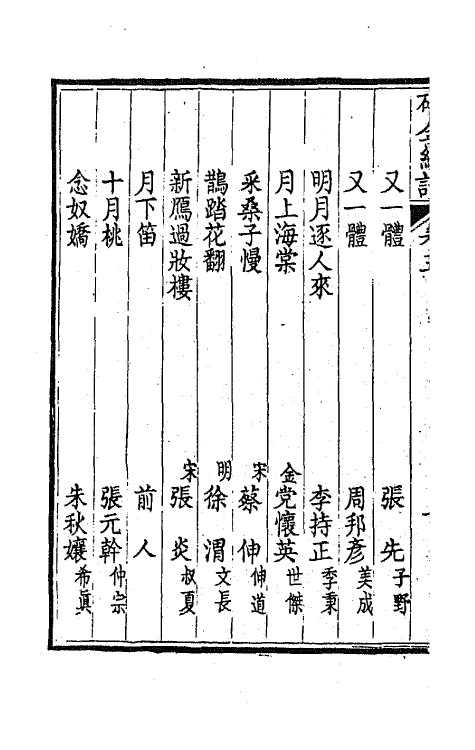 又一體　張先子野
又一體　周邦彥美成
明月逐人來　李持正季秉
月上海棠　金党懷英世傑
采桑子慢　宋蔡伸伸道
鵲踏花翻　明徐渭文長
新鴈過妝樓　宋張炎叔夏
月下笛　前人
十月桃　張元幹仲宗
念奴嬌　朱秋孃希真